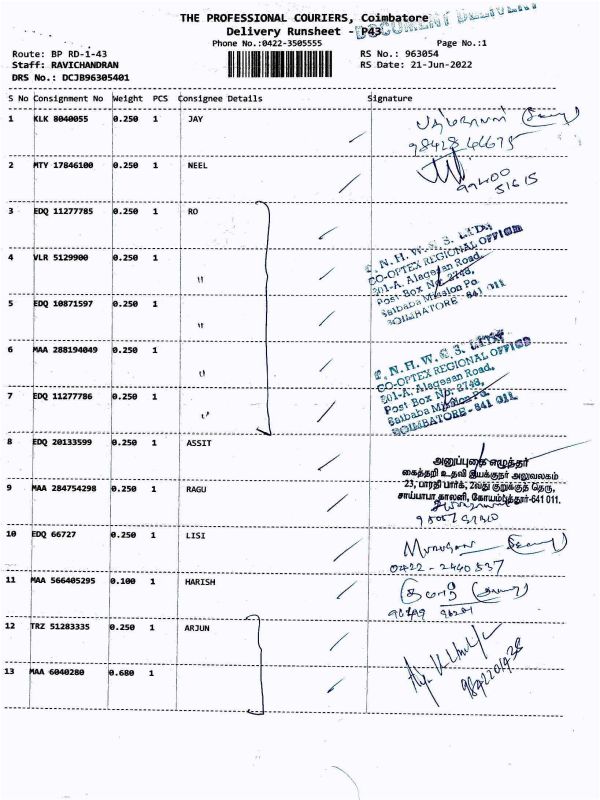 THE PROFESSIONAL COURIERS, Coimbatore
Delivery Runsheet - P43
DOCUMENT DELIVERY
Phone No.:0422-3505555
Page No.:1
Route: BP RD-1-43
RS No.: 963054
Staff: RAVICHANDRAN
RS Date: 21-Jun-2022
DRS No.: DCJB96305401
S No Consignment No Weight PCS Consignee Details Signature
1 KLK 8040055 0.250 1 JAY
2 MTY 17846100 0.250 1 NEEL
99400
51615
3 EDQ 11277785 0.250 1 RO
4 VLR 5129900 0.250 1 "
N. H. W. S. S. LTD
CO-OPTEX REGIONAL OFFICE
201-A. Alagesan Road,
Post Box No: 2748,
Saibaba Mission Po.
COIMBATORE - 641 011
5 EDQ 10871597 0.250 1 "
6 MAA 288194049 0.250 1 "
7 EDQ 11277786 0.250 1 "
N. H. W. S. S. LTD
CO-OPTEX REGIONAL OFFICE
201-A. Alagesan Road,
Post Box No: 2748,
Saibaba Mission Po.
COIMBATORE - 641 011
8 EDQ 20133599 0.250 1 ASSIT
அனுப்புகை எழுத்தர்
கைத்தறி உதவி இயக்குநர் அலுவலகம்
23, பாரதி பார்க், 2வது குறுக்குத் தெரு,
சாய்பாபா காலனி, கோயம்புத்தூர்-641 011.
9 MAA 284754298 0.250 1 RAGU
10 EDQ 66727 0.250 1 LISI
Murugan
0422-2440537
11 MAA 566405295 0.100 1 HARISH
12 TRZ 51283335 0.250 1 ARJUN
13 MAA 6040280 0.680 1
9842201938